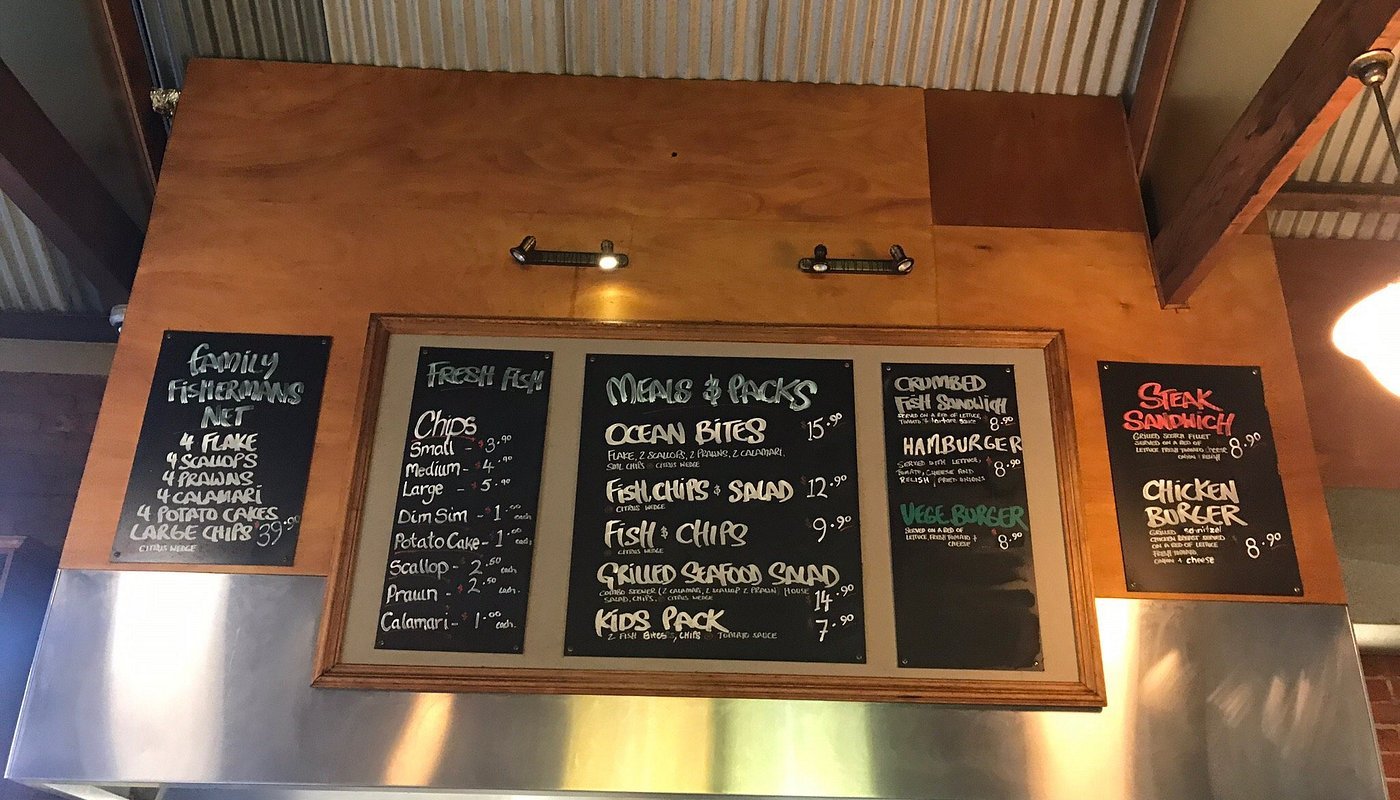 FAMILY
FISHERMANS
NET
4 FLAKE
4 SCALLOPS
4 PRAWNS
4 CALAMARI
4 POTATO CAKES
LARGE CHIPS $39.90
CITRUS WEDGE
FRESH FISH
Chips
Small - $3.90
Medium - $4.90
Large - $5.90
Dim Sim - $1.00 each
Potato Cake - $1.00 each
Scallop - $2.50 each
Prawn - $2.50 each.
Calamari - $1.00 each.
MEALS & PACKS
OCEAN BITES $15.90
FLAKE, 2 SCALLOPS, 2 PRAWNS, 2 CALAMARI,
SML CHIPS CITRUS WEDGE
FISH, CHIPS & SALAD $12.90
CITRUS WEDGE
FISH & CHIPS $9.90
CITRUS WEDGE
GRILLED SEAFOOD SALAD
COMBO SKEWER (2 CALAMARI, 2 SCALLOP 2 PRAWN) HOUSE
SALAD, CHIPS, CITRUS WEDGE $14.90
KIDS PACK $7.90
2 FISH BITES, CHIPS TOMATO SAUCE
CRUMBED
FISH SANDWICH
SERVED ON A BED OF LETTUCE,
TOMATO & tartare SAUCE $8.90
HAMBURGER
SERVED WITH LETTUCE, $8.90
TOMATO, CHEESE AND
RELISH / FRIED ONIONS
VEGE BURGER
SERVED ON A BED OF
LETTUCE, FRESH TOMATO & $8.90
CHEESE
STEAK
SANDWICH
GRILLED SCOTCH FILLET
SERVED ON A BED OF $8.90
LETTUCE FRESH TOMATO cheese
ONION / RELISH
CHICKEN
BURGER
GRILLED schnitzel
CHICKEN BREAST SERVED
ON A BED OF LETTUCE $8.90
FRESH TOMATO
ONION + cheese